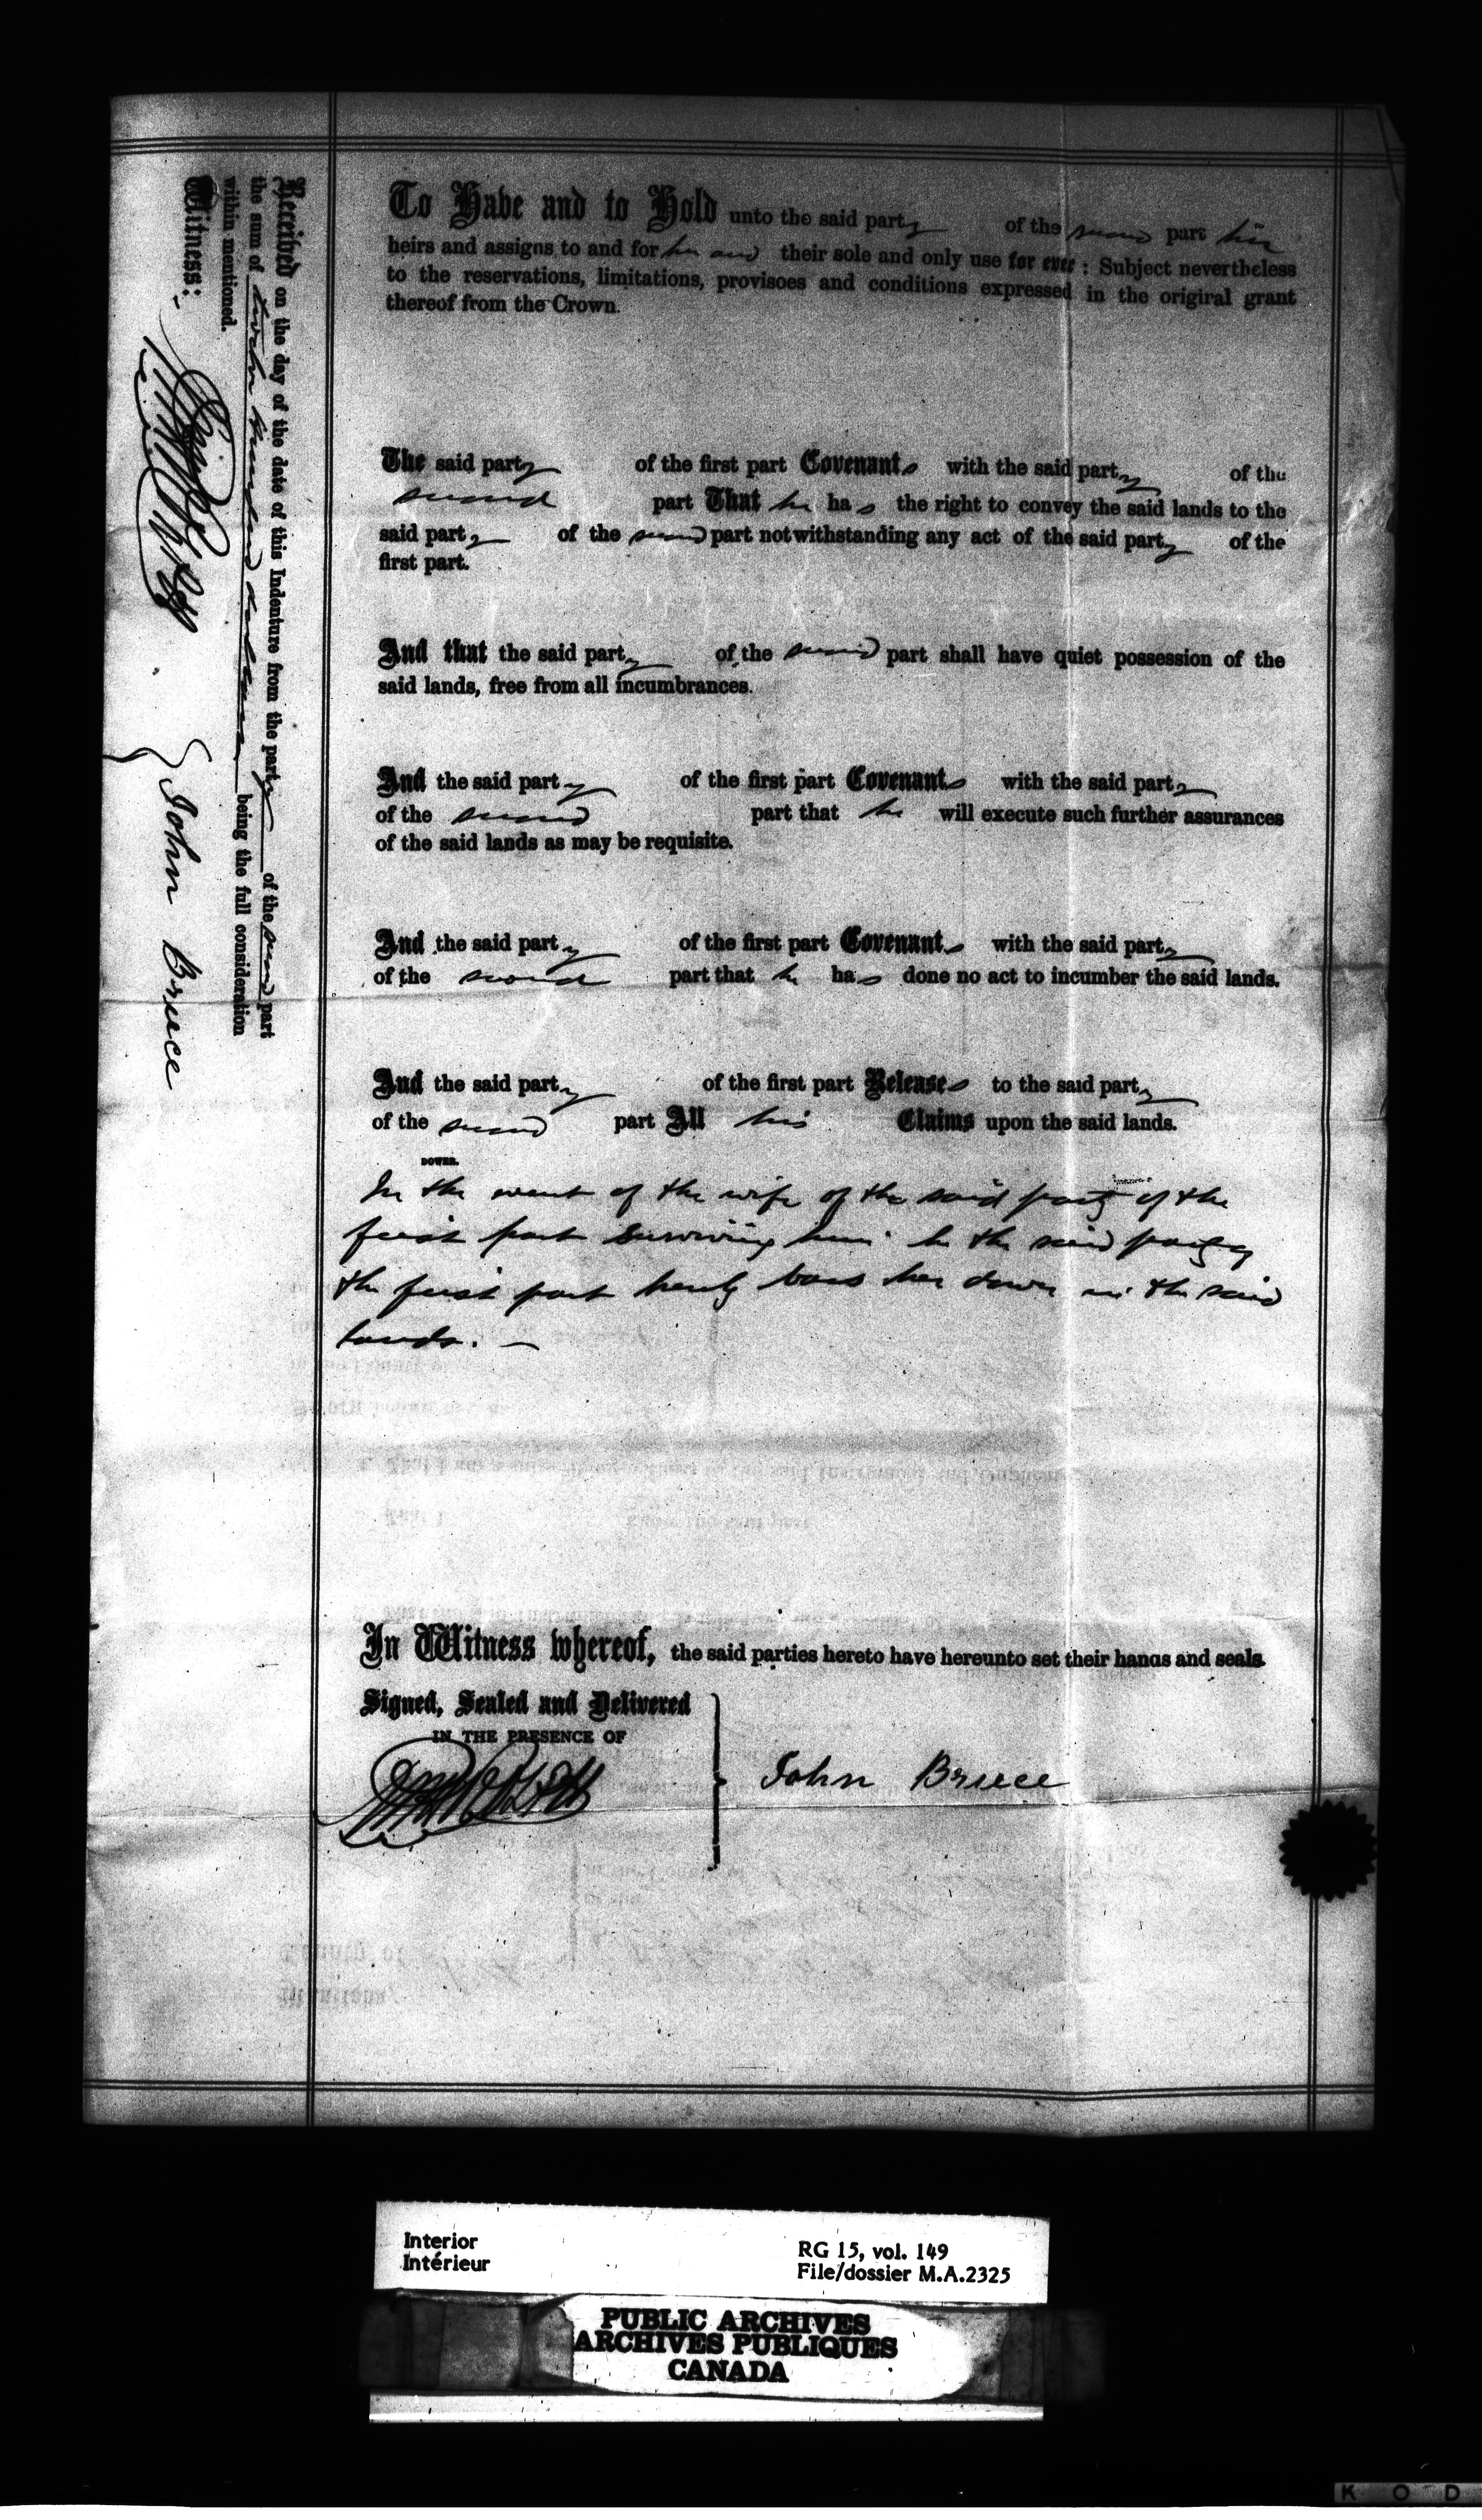 To Have and to Hold unto the said party of the second part his
heirs and assigns to and for his and their sole and only use for ever : Subject nevertheless
to the reservations, limitations, provisoes and conditions expressed in the original grant
thereof from the Crown.
The said party of the first part Covenants with the said party of the
second part That he has the right to convey the said lands to the
said party of the second part notwithstanding any act of the said party of the
first part.
And that the said party of the second part shall have quiet possession of the
said lands, free from all incumbrances.
And the said party of the first part Covenants with the said party
of the second part that he will execute such further assurances
of the said lands as may be requisite.
And the said party of the first part Covenants with the said party
of the second part that he has done no act to incumber the said lands.
And the said party of the first part Releases to the said party
of the second part All his Claims upon the said lands.
DOWER.
In the event of the wife of the said party of the
first part surviving him he the said party of
the first part hereby bars her dower in the said
lands. —
In Witness whereof, the said parties hereto have hereunto set their hands and seals
Signed, Sealed and Delivered
IN THE PRESENCE OF
John Bruce
Received on the day of the date of this Indenture from the party of the second part
the sum of twelve hundred dollars being the full consideration
within mentioned.
Witness:
John Bruce
Interior
Intérieur
RG 15, vol. 149
File/dossier M.A.2325
PUBLIC ARCHIVES
ARCHIVES PUBLIQUES
CANADA
K O D